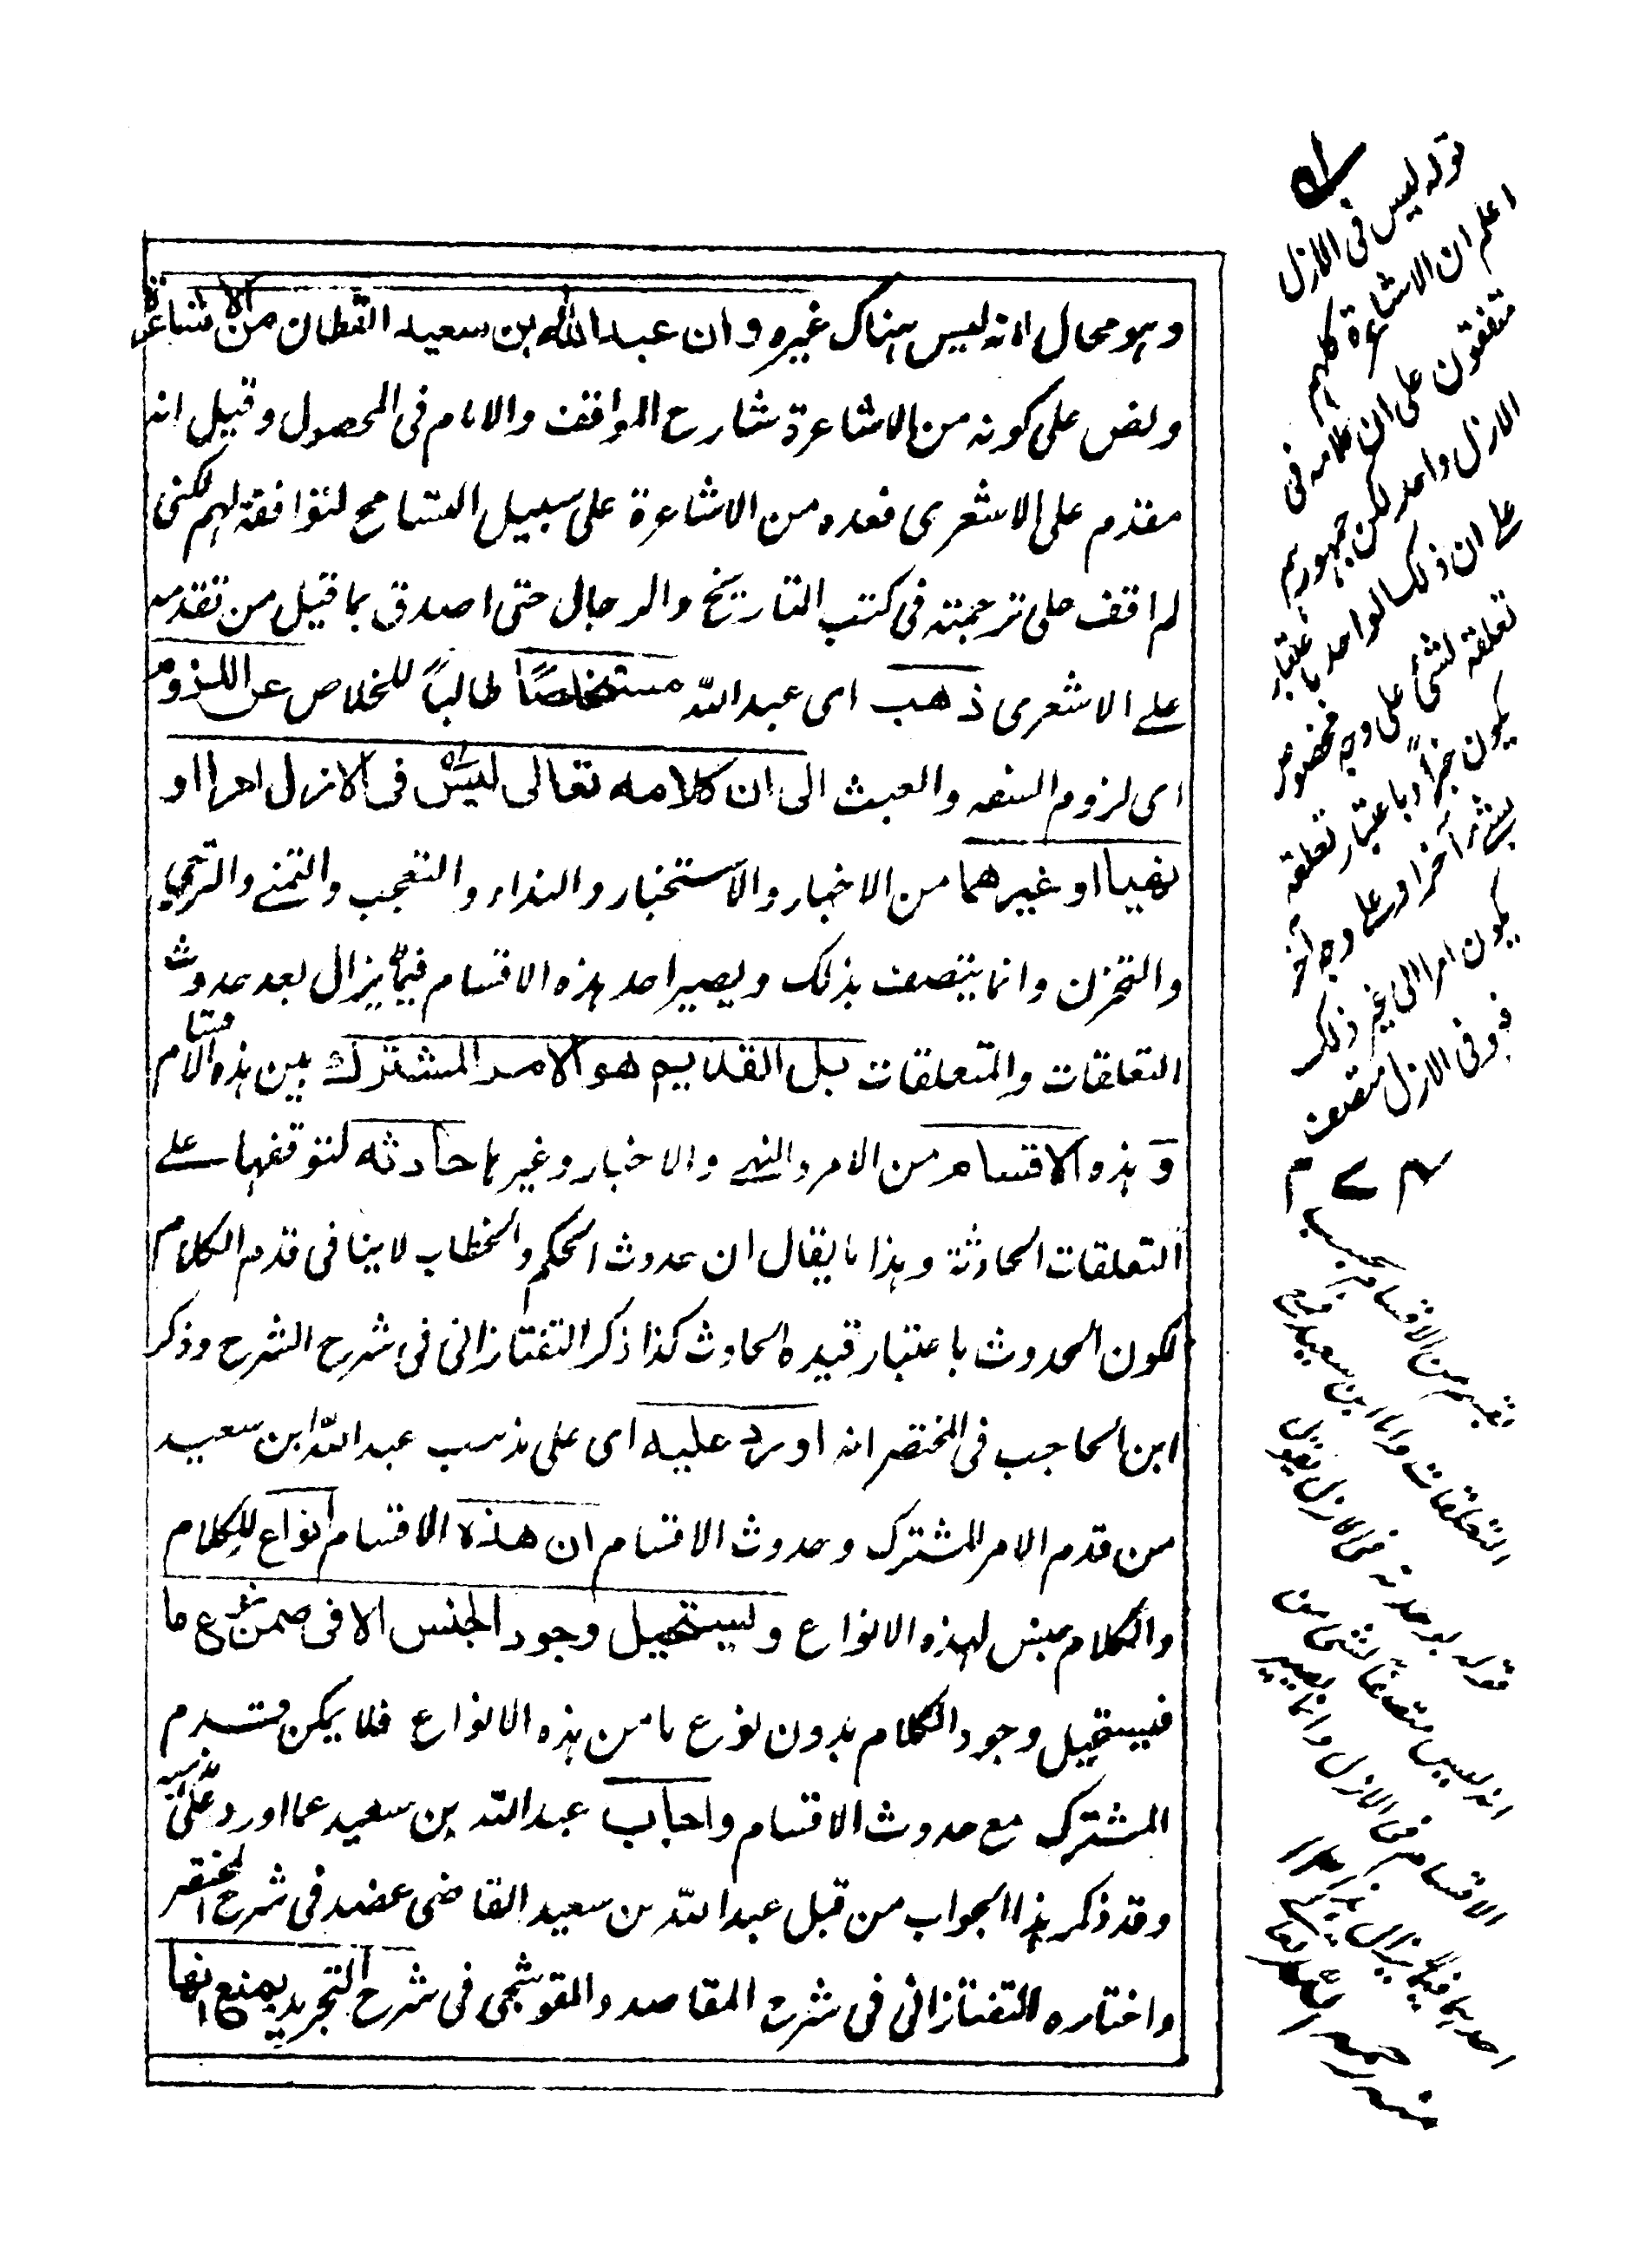 وهو محال لانه ليس هناك غيره وان عبد الله بن سعيد القطان من الاشاعرة
ونص على كونه من الاشاعرة شارح المواقف والامام فى المحصول وقيل انه
مقدم على الاشعرى فعده من الاشاعرة على سبيل التسامح لتوافقه لهم لكنى
لم اقف على ترجمته فى كتب التاريخ والرجال حتى اصدق بما قيل من تقدمه
على الاشعرى ذهب اى عبد الله مستخلصًا طالبًا للخلاص عن اللزوم
اى لزوم السفه والعبث الى ان كلامه تعالى ليس فى الازل امرا او
نهيا او غيرهما من الاخبار والاستخبار والنداء والتعجب والتمنى والترجى
والتحزن وانما يتصف بذلك ويصير احد هذه الاقسام فيما لا يزال بعد حدوث
التعلقات والمتعلقات بل القديم هو الامر المشترك بين هذه الاقسام
و هذه الاقسام من الامر والنهى والاخبار وغيرها حادثه لتوقفها على
التعلقات الحادثة وهذا ما يقال ان حدوث الحكم والخطاب لا ينافى قدم الكلام
لكون الحدوث باعتبار قيده الحادث كذا ذكر التفتازانى فى شرح الشرح وذكر
ابن الحاجب فى المختصر انه اورد عليه اى على مذهب عبد الله ابن سعيد
من قدم الامر المشترك وحدوث الاقسام ان هذه الاقسام انواع للكلام
والكلام جنس لهذه الانواع ويستحيل وجود الجنس الا فى ضمن نوع ما
فيستحيل وجود الكلام بدون نوع ما من هذه الانواع فلا يمكن قدم
المشترك مع حدوث الاقسام واجاب عبد الله بن سعيد عما اورد على مذهبه
وقد ذكر هذا الجواب من قبل عبد الله بن سعيد القاضى عضد فى شرح المختصر
واختاره التفتازانى فى شرح المقاصد والقوشجى فى شرح التجريد بمنع انها
قوله ليس فى الازل
اعلم ان الاشاعرة كلهم
متفقون على ان كلامه فى
الازل واحد لكن جمهورهم
على ان ذلك الواحد باعتبار
تعلقه لشئ على وجه مخصوص
يكون خبراً وباعتبار تعلقه
بشئ آخر او على وجه آخر
يكون امرا الى غير ذلك
فهو فى الازل متصف
بقسم من الاقسام بحسب
التعلقات واما ابن سعيد
انه ليس متصفا بشئ من
الاقسام فى الازل وانما يصير
احدها فيما لا يزال